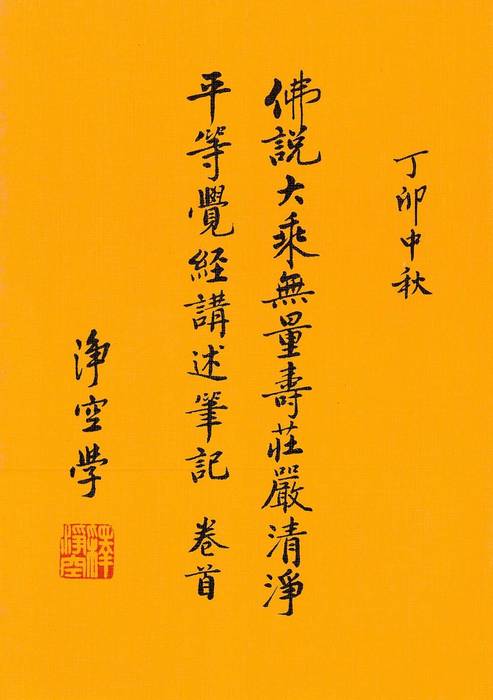 丁卯中秋
佛説大乘無量壽莊嚴清淨
平等覺経講述筆記 卷首
淨空学
釋淨空